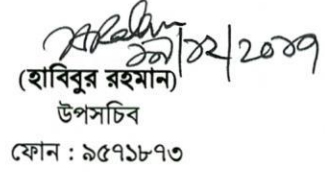 ২০১৭
(হাবিবুর রহমান)
উপসচিব
ফোন : ৯৫৭১৮৭৩